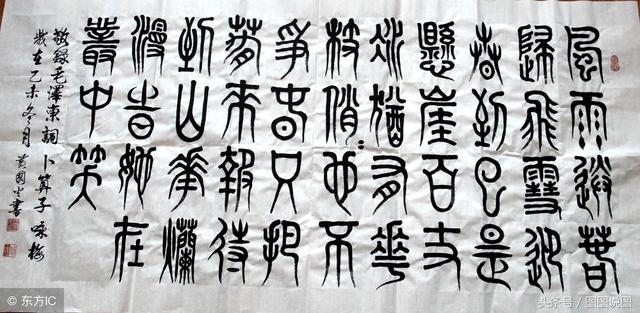 風雨送春
歸飛雪迎
春到已是
懸崖百丈
冰猶有華
枝俏也不
爭春只把
春來報待
到山華爛
漫時她在
叢中笑
敬錄毛澤東詞卜算子 詠梅
歲在乙未冬月 黃國書
© 东方IC
头条号 / 图图说图